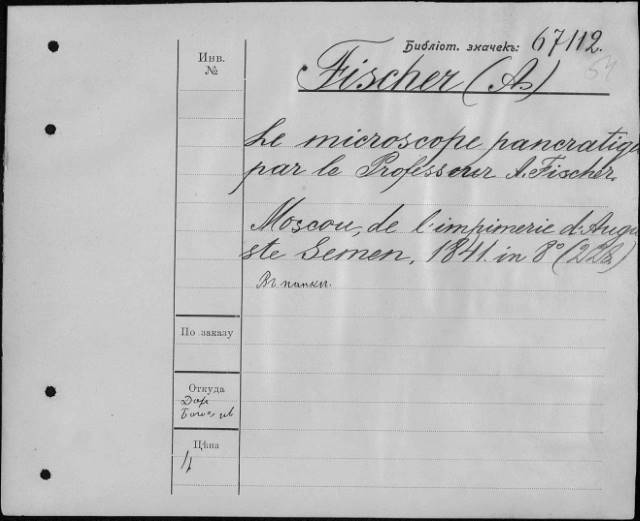 Библіот. значекъ: 67/112.
54
Инв.
№
Fischer (A)
Le microscope pancratiqu
par le Professeur A. Fischer.
Moscou, de l'impimerie d'Augu
ste Semen, 1841. in 8° (22
Въ папкы.
По заказу
Откуда
Дар
Цѣна